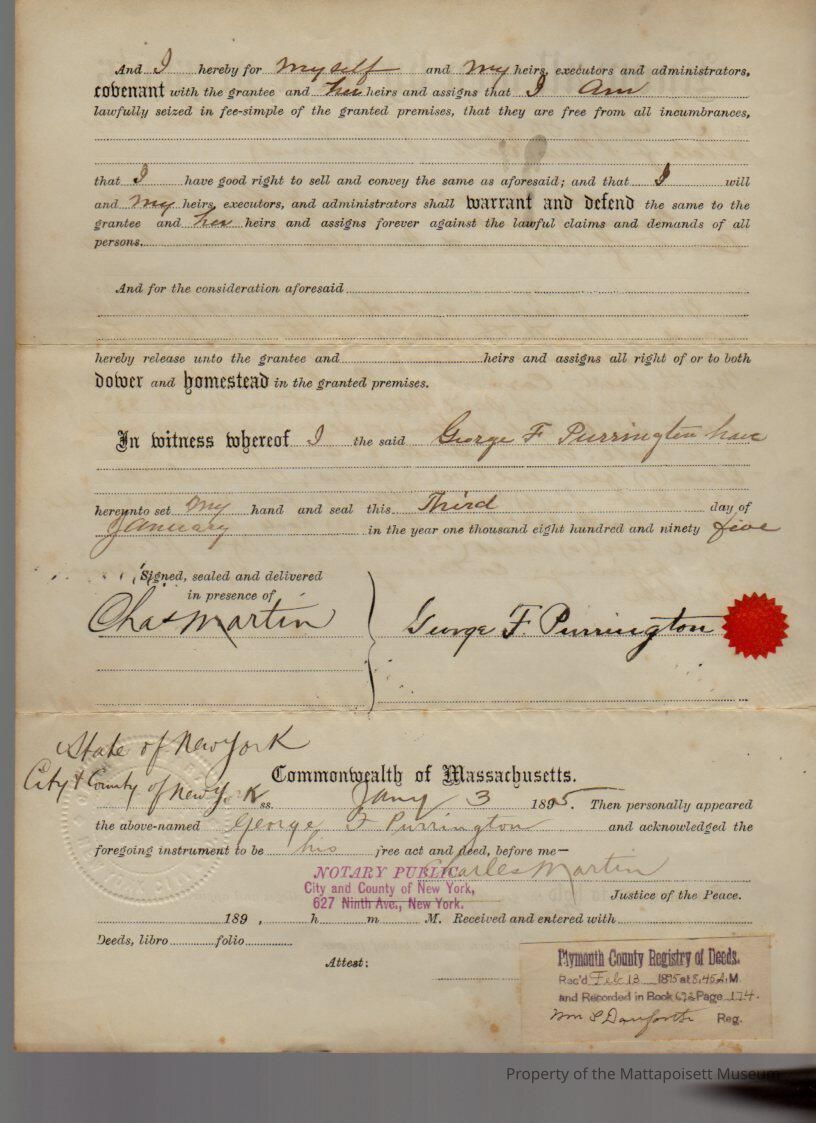 And I hereby for myself and my heirs, executors and administrators,
covenant with the grantee and her heirs and assigns that I am
lawfully seized in fee-simple of the granted premises, that they are free from all incumbrances,
that I have good right to sell and convey the same as aforesaid; and that I will
and my heirs, executors, and administrators shall warrant and defend the same to the
grantee and her heirs and assigns forever against the lawful claims and demands of all
persons.
And for the consideration aforesaid
hereby release unto the grantee and heirs and assigns all right of or to both
dower and homestead in the granted premises.
In witness whereof I the said George F Purrington have
hereunto set my hand and seal this Third day of
January in the year one thousand eight hundred and ninety five
Signed, sealed and delivered
in presence of
Chas Martin George F. Purrington
State of New York
City & County of New York ss.
Commonwealth of Massachusetts.
Jany 3 1895. Then personally appeared
the above-named George F Purrington and acknowledged the
foregoing instrument to be his free act and deed, before me—
Charles Martin
NOTARY PUBLIC
City and County of New York,
627 Ninth Ave., New York.
Justice of the Peace.
189 , h m M. Received and entered with
Deeds, libro folio
Attest:
Plymouth County Registry of Deeds.
Rec'd Feb 13 1895 at 8,45 A.M.
and Recorded in Book Page 174.
Wm S Danforth Reg.
Property of the Mattapoisett Museum